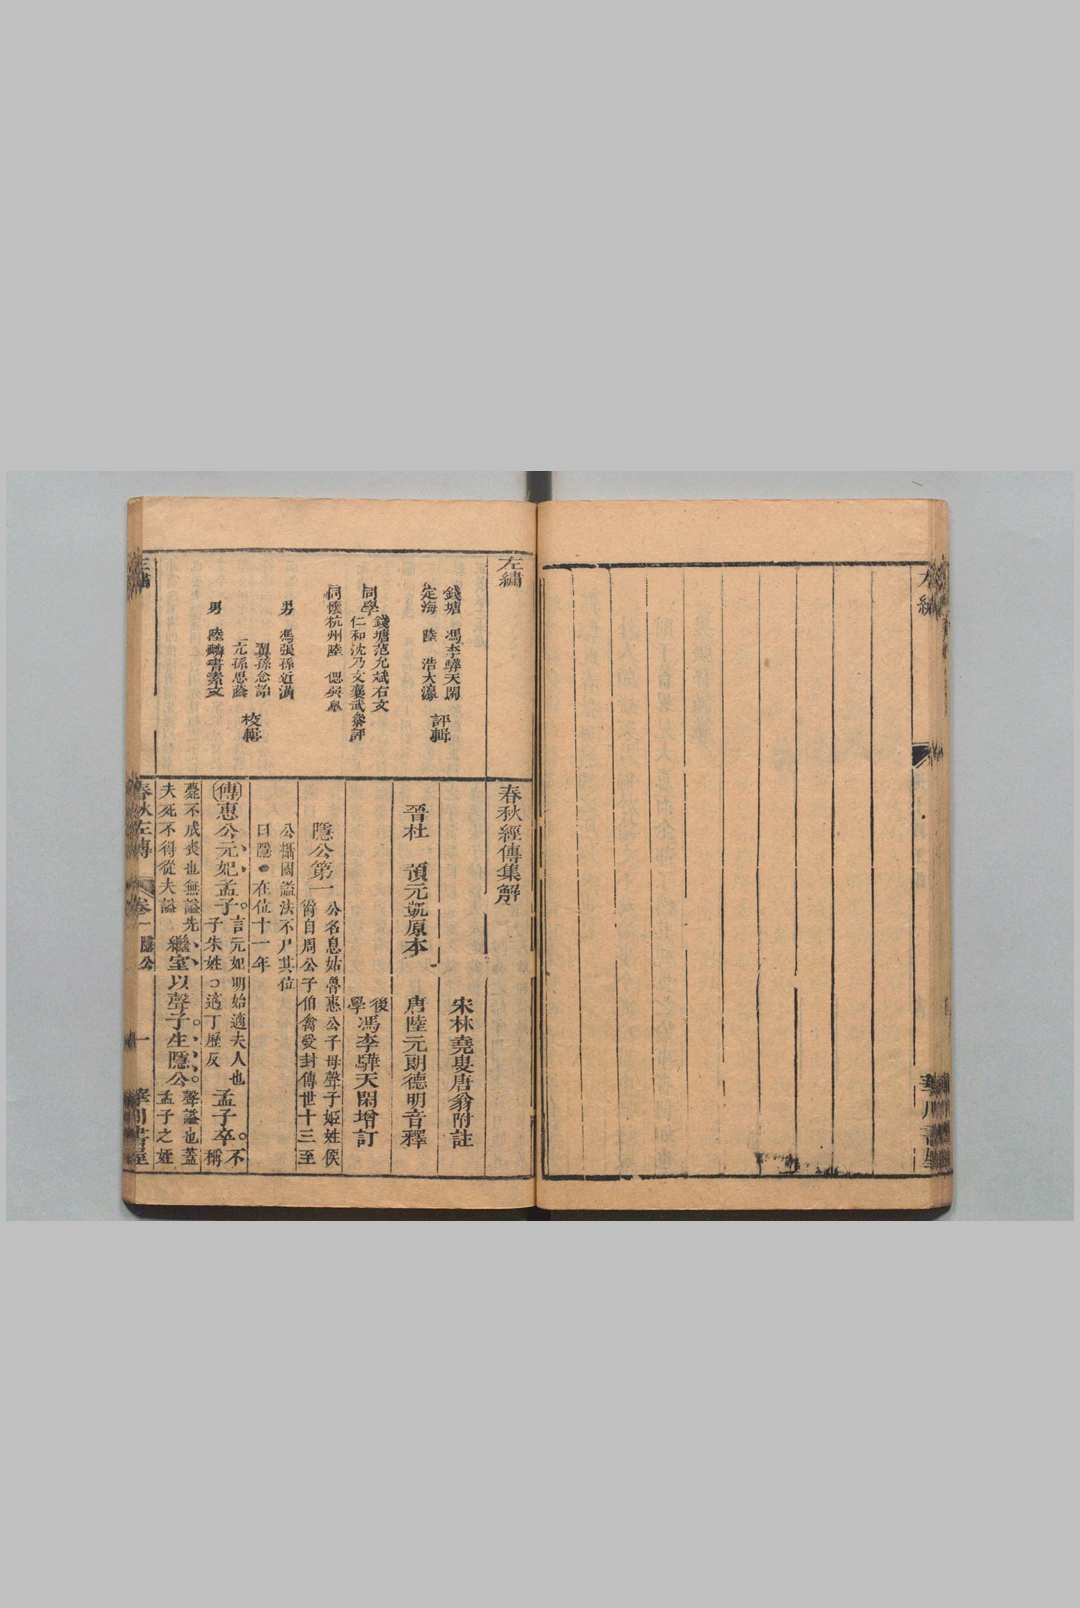 左繡
華川書屋
左繡
錢塘 馮李驊天閑
定海 陸 浩大瀛
評輯
同學
錢塘范允斌右文
仁和沈乃文襄武參評
同懷杭州陸 偲
男 馮張孫近潢
翼孫念詒
男 陸麟書素文
校輯
春秋經傳集解
宋林堯叟唐翁附註
晉杜 預元凱原本
唐陸元朗德明音釋
後學馮李驊天閑增訂
隱公第一
公名息姑魯惠公子母聲子姬姓侯
爵自周公子伯禽受封傳世十三至
公攝國謚法不尸其位
曰隱 在位十一年
傳惠公元妃孟子
言元妃明始適夫人也
子宋姓 適丁歷反
孟子卒
不稱
薨不成喪也無謚先
夫死不得從夫謚
繼室以聲子生隱公
聲謚也蓋
孟子之姪
春秋左傳
卷一
隱公
一
華川書屋